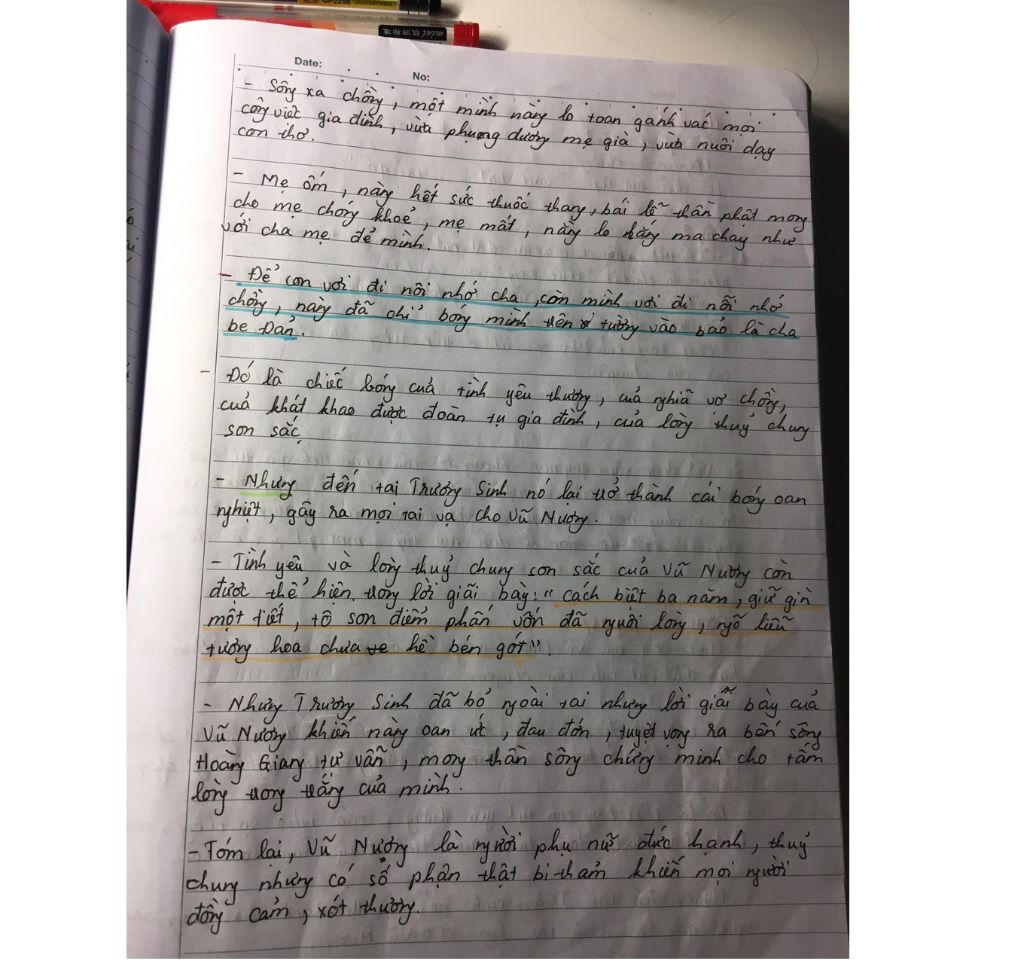 Date:
No:
- Sống xa chồng, một mình nàng lo toan gánh vác mọi
công việc gia đình, vừa phụng dưỡng mẹ già, vừa nuôi dạy
con thơ.
- Mẹ ốm, nàng hết sức thuốc thang, bái lễ thần phật mong
cho mẹ chóng khoẻ, mẹ mất, nàng lo lắng ma chay như
với cha mẹ đẻ mình.
- Để con vơi đi nỗi nhớ cha, còn mình vơi đi nỗi nhớ
chồng, nàng đã chỉ bóng mình trên tường vào bảo là cha
bé Đản.
- Đó là chiếc bóng của tình yêu thương, của nghĩa vợ chồng,
của khát khao được đoàn tụ gia đình, của lòng thuỷ chung
son sắc
- Nhưng đến tai Trương Sinh nó lại trở thành cái bóng oan
nghiệt, gây ra mọi tai vạ cho Vũ Nương.
- Tình yêu và lòng thuỷ chung son sắc của Vũ Nương còn
được thể hiện trong lời giãi bày: "cách biệt ba năm, giữ gìn
một tiết, tô son điểm phấn vốn đã nguôi lòng, ngõ liễu
tường hoa chưa hề bén gót".
- Nhưng Trương Sinh đã bỏ ngoài tai những lời giãi bày của
Vũ Nương khiến nàng oan ức, đau đớn, tuyệt vọng ra bến sông
Hoàng Giang tự vẫn, mong thần sông chứng minh cho tấm
lòng trong trắng của mình.
- Tóm lại, Vũ Nương là người phụ nữ đức hạnh, thuỷ
chung nhưng có số phận thật bi thảm khiến mọi người
đồng cảm, xót thương.